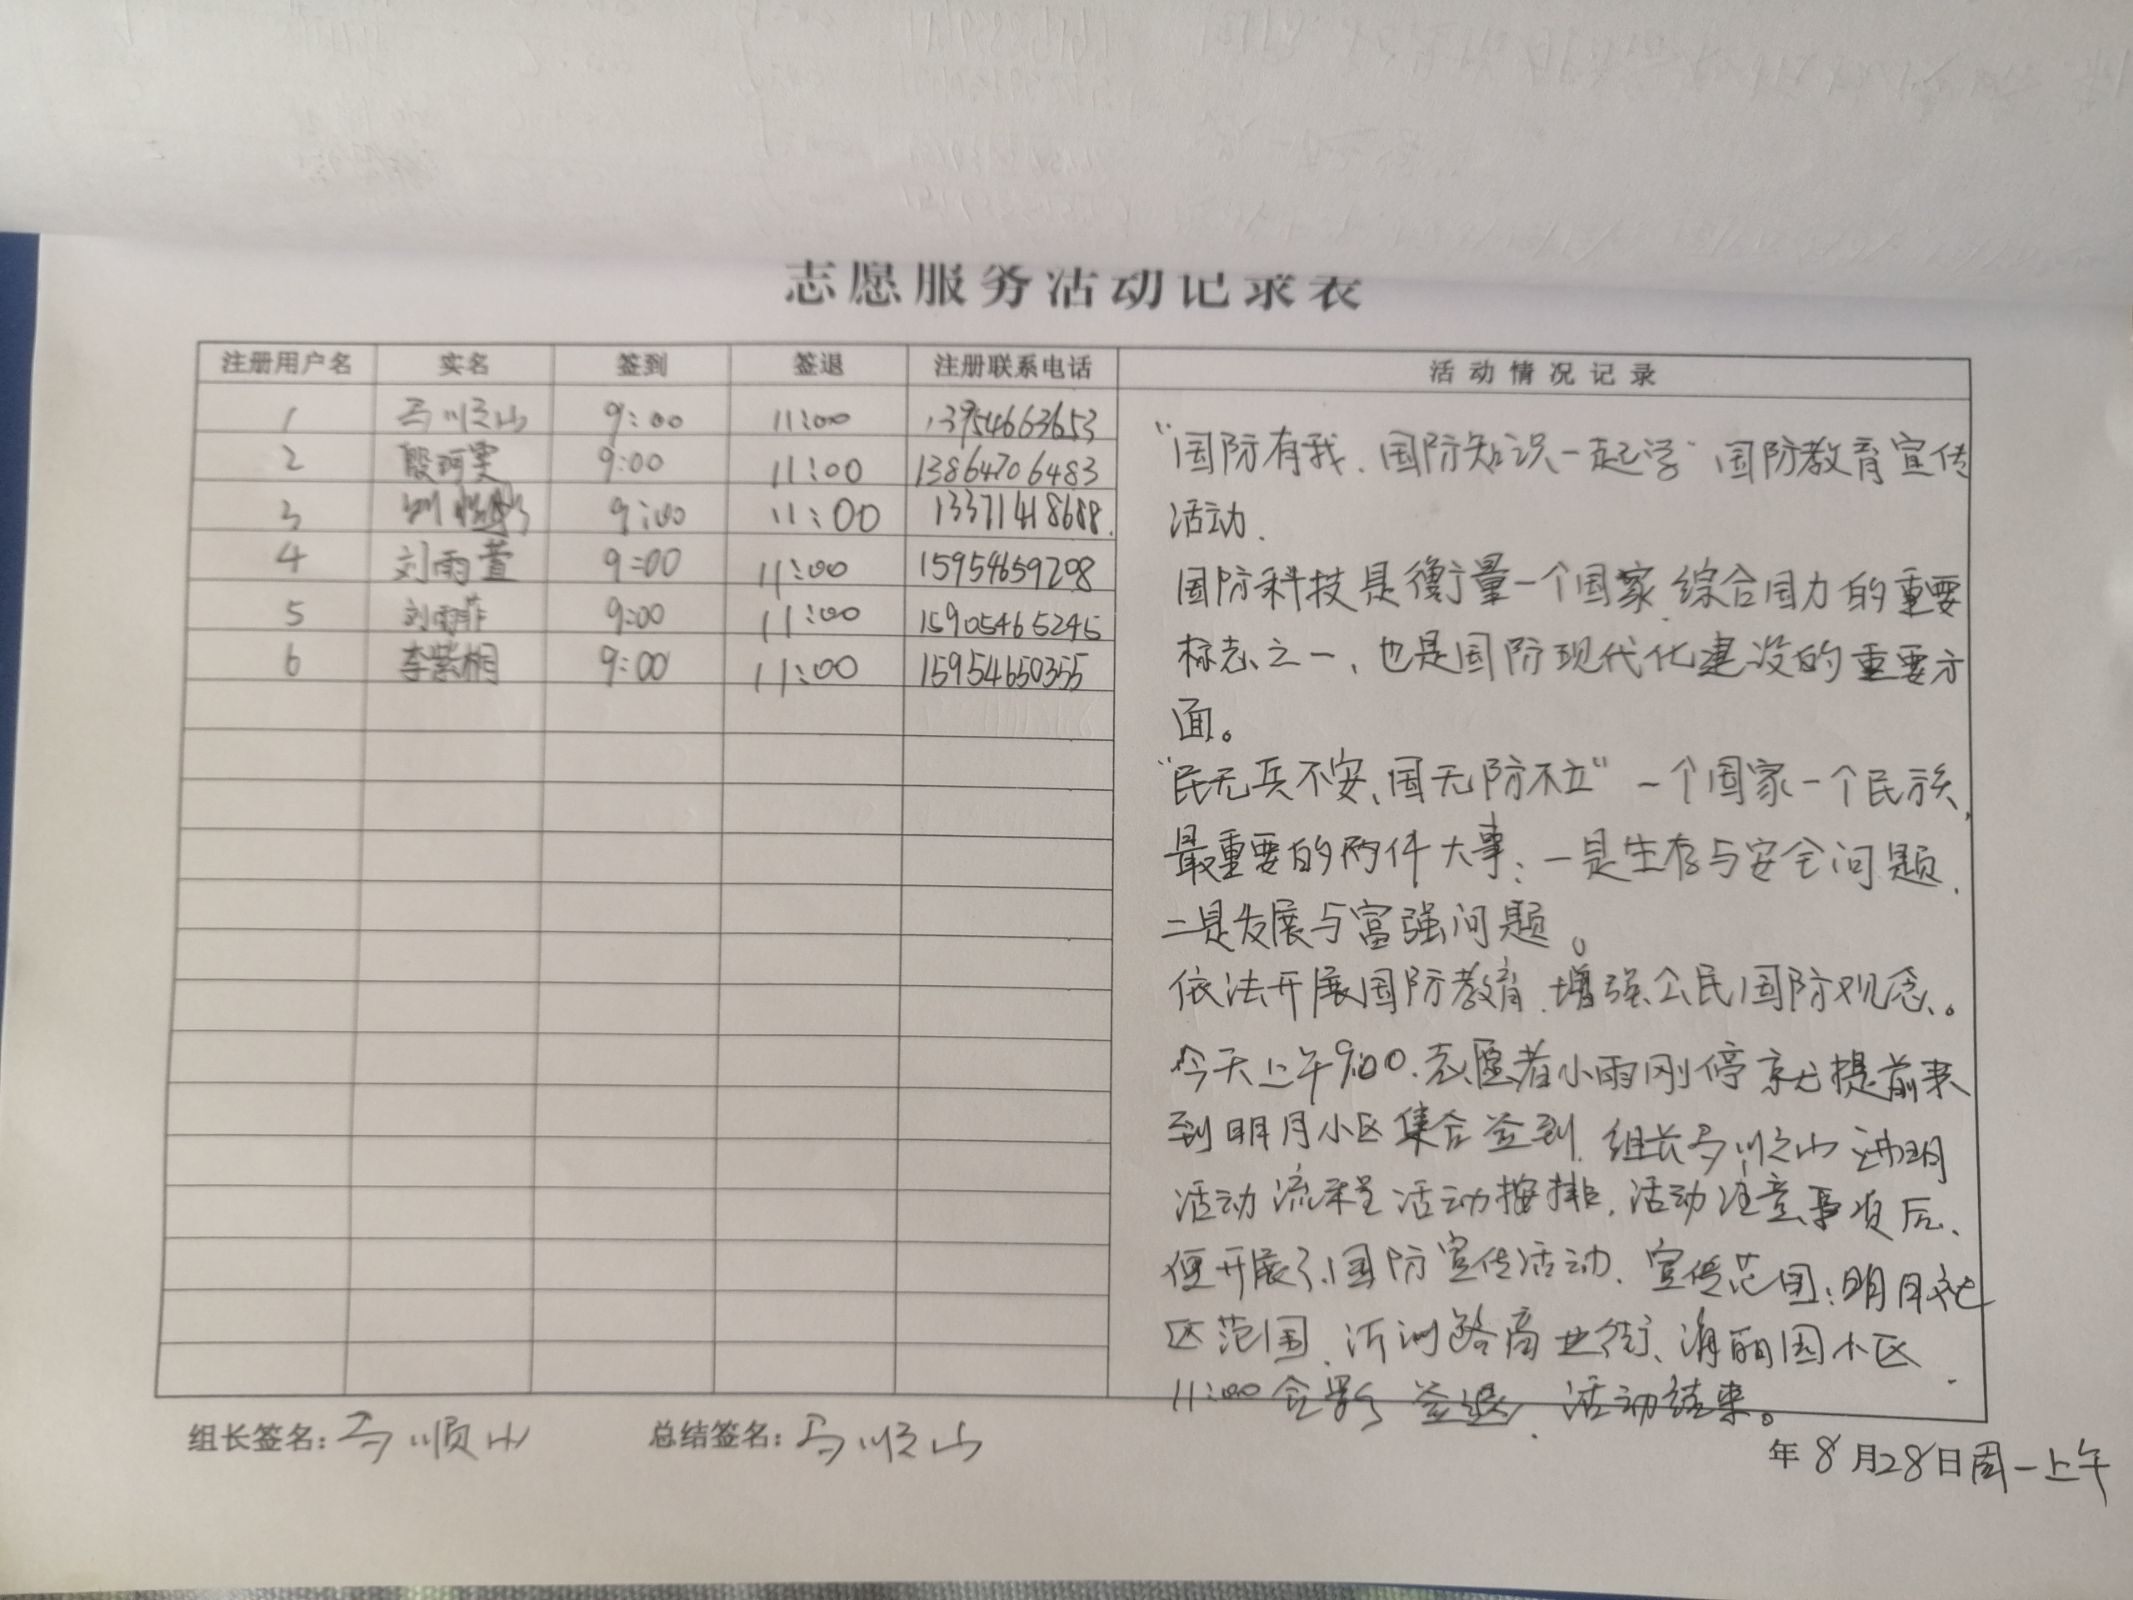 志愿服务活动记录表
注册用户名 实名 签到 签退 注册联系电话 活动情况记录
1 马顺山 9:00 11:00 13954663653
2 殷珂雯 9:00 11:00 13864706483
3 9:00 11:00 13371418688
4 刘雨萱 9:00 11:00 15954659208
5 刘雨菲 9:00 11:00 15905465245
6 李紫桐 9:00 11:00 15954650355
“国防有我、国防知识一起学”国防教育宣传
活动.
国防科技是衡量一个国家综合国力的重要
标志之一、也是国防现代化建设的重要方
面。
“民无兵不安、国无防不立”一个国家一个民族,
最重要的两件大事:一是生存与安全问题.
二是发展与富强问题。
依法开展国防教育.增强公民国防观念。
今天上午9:00.志愿者小雨刚停就提前来
到明月小区集合签到.组长马顺山讲明
活动流程活动按排.活动注意事项后、
便开展了国防宣传活动、宣传范围:明月社
区范围、沂河路商业街、海丽园小区.
11:00合影签退.活动结束。
组长签名:马顺山 总结签名:马顺山
年8月28日周一上午